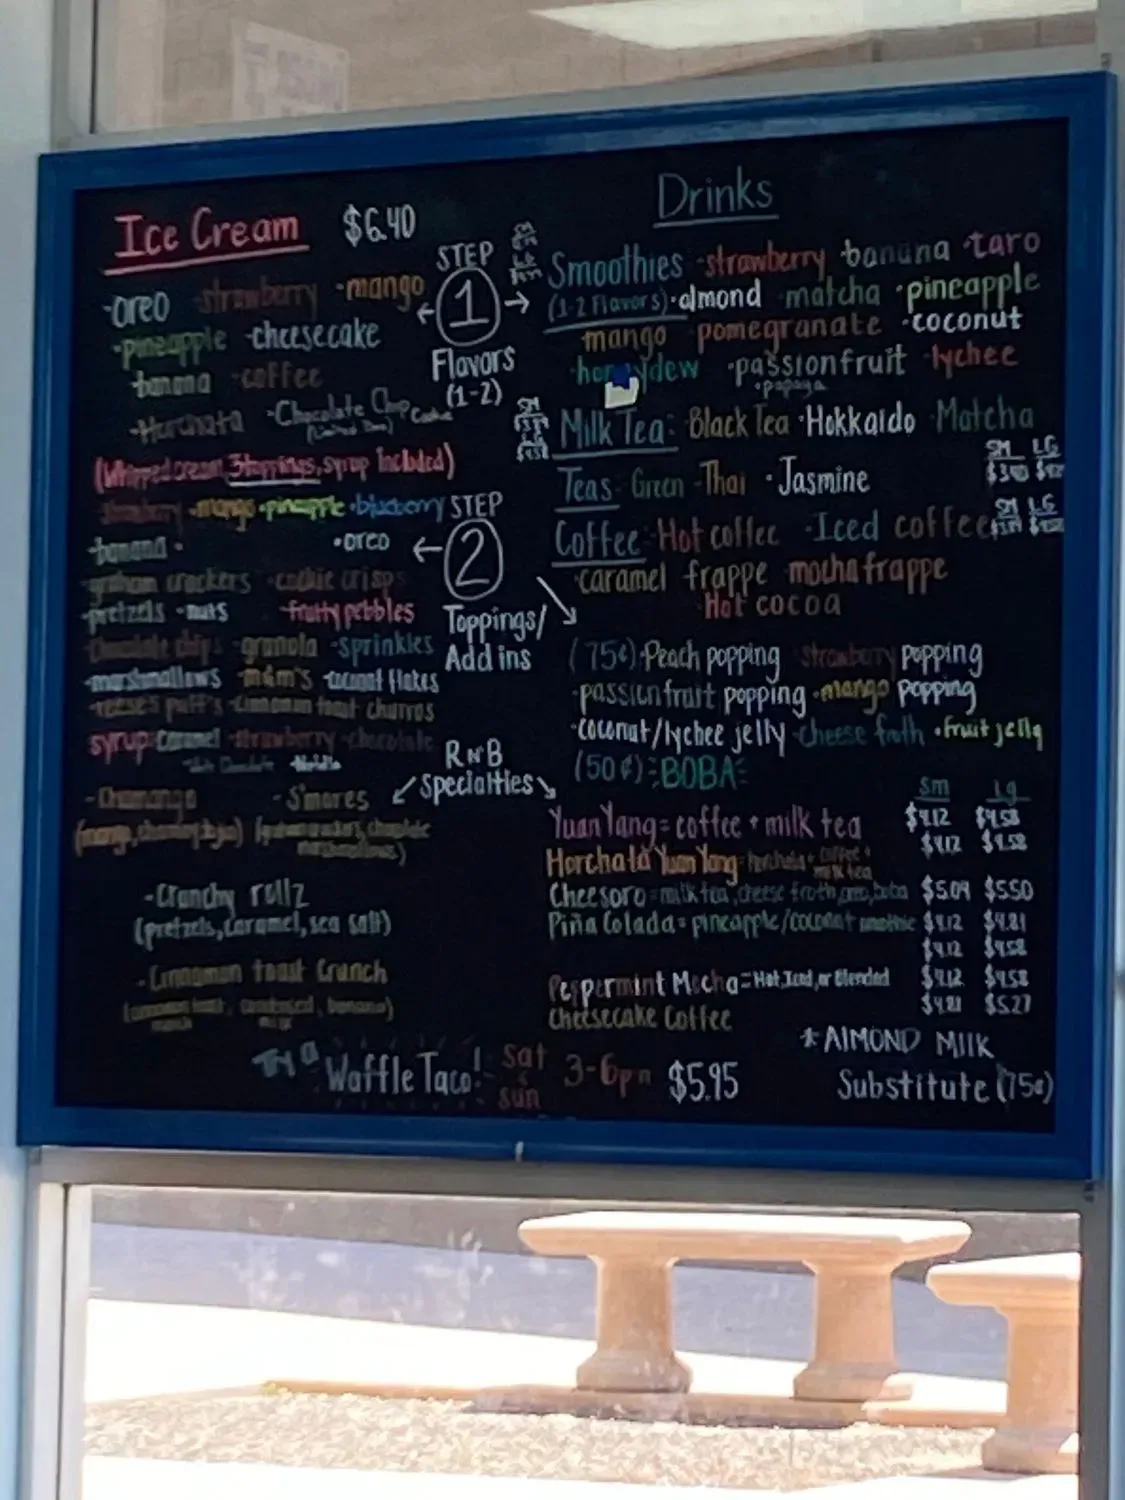 Ice Cream $6.40
-oreo -strawberry -mango
-pineapple -cheesecake
banana -coffee
-Horchata -Chocolate Chip Cookie
(Whipped cream, 3 toppings, syrup included)
strawberry -mango •pineapple •blueberry
-banana • •oreo
-graham crackers -cookie crisps
-pretzels -nuts -fruity pebbles
-Chocolate chips -granola -sprinkles
-marshmallows -m&m's -coconut flakes
-reeses puff's -cinnamon toast churros
syrup: caramel -strawberry -chocolate
-Nutella
-Chamango -S'mores
(mango, chamoy,
marshmallows)
-Crunchy rollz
(pretzels, caramel, sea salt)
-Cinnamon toast Crunch
STEP
1
Flavors
(1-2)
STEP
2
Toppings/
Add ins
R N' B
Specialties
Drinks
Smoothies -strawberry banana -taro
(1-2 Flavors) •almond matcha •pineapple
mango pomegranate •coconut
honeydew •passionfruit •lychee
•papaya
Milk Tea: Black Tea •Hokkaido •Matcha
SM LG
Teas- Green -Thai •Jasmine
SM LG
Coffee: Hot coffee •Iced coffee
•caramel frappe mocha frappe
•Hot cocoa
(75¢) •Peach popping strawberry popping
•passionfruit popping •mango popping
•coconut/lychee jelly -cheese froth •fruit jelly
(50¢) BOBA
Sm Lg
Yuan Yang = coffee + milk tea $4.12 $4.58
Horchata Yuan Yang = horchata + coffee + milk tea $4.12 $4.58
Cheesoro = milk tea, cheese froth, oreo, boba $5.04 $5.50
Piña Colada = pineapple/coconut smoothie $4.12 $4.81
$4.12 $4.58
Peppermint Mocha = Hot, Iced, or Blended $4.12 $4.58
Cheesecake Coffee $4.81 $5.27
*AlMOND MIlK
Substitute (75¢)
Try a Waffle Taco! Sat & sun 3-6pm $5.95